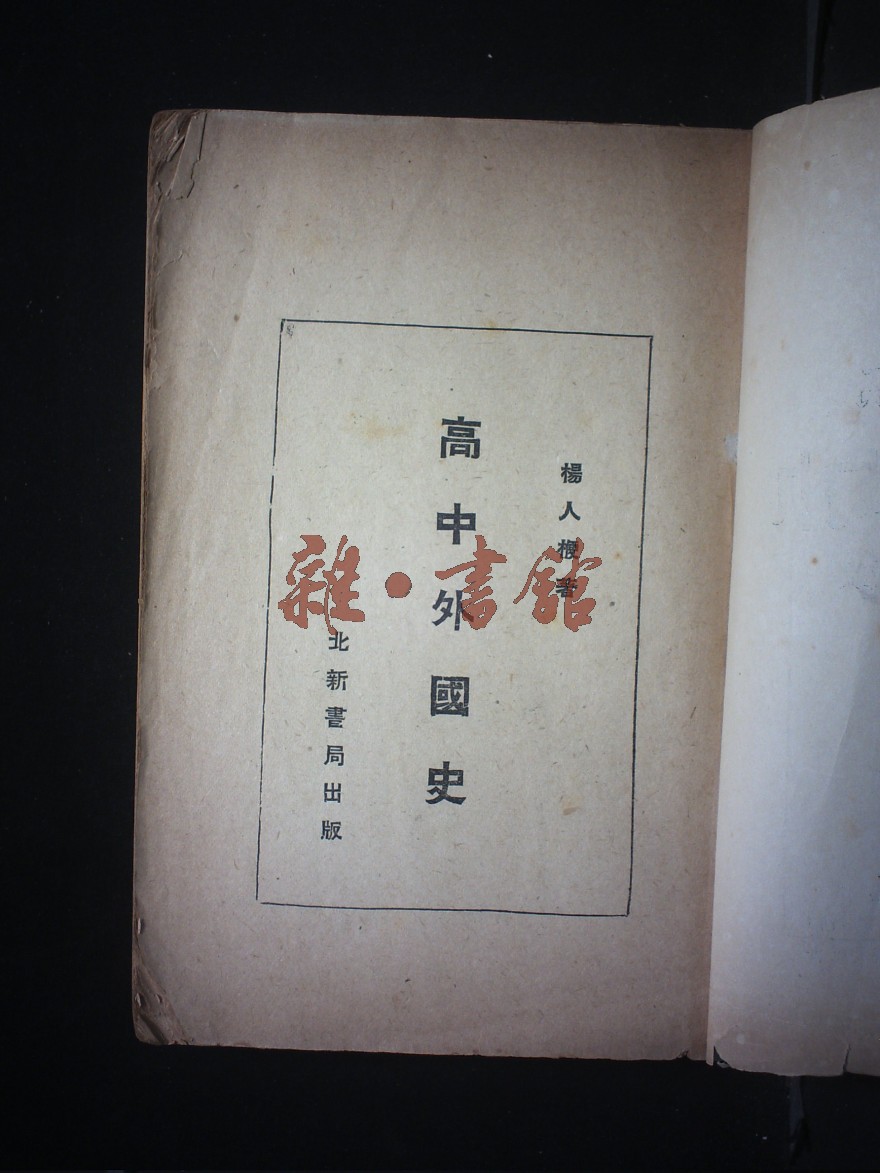 楊人楩著
高中外國史
北新書局出版
雜·書館